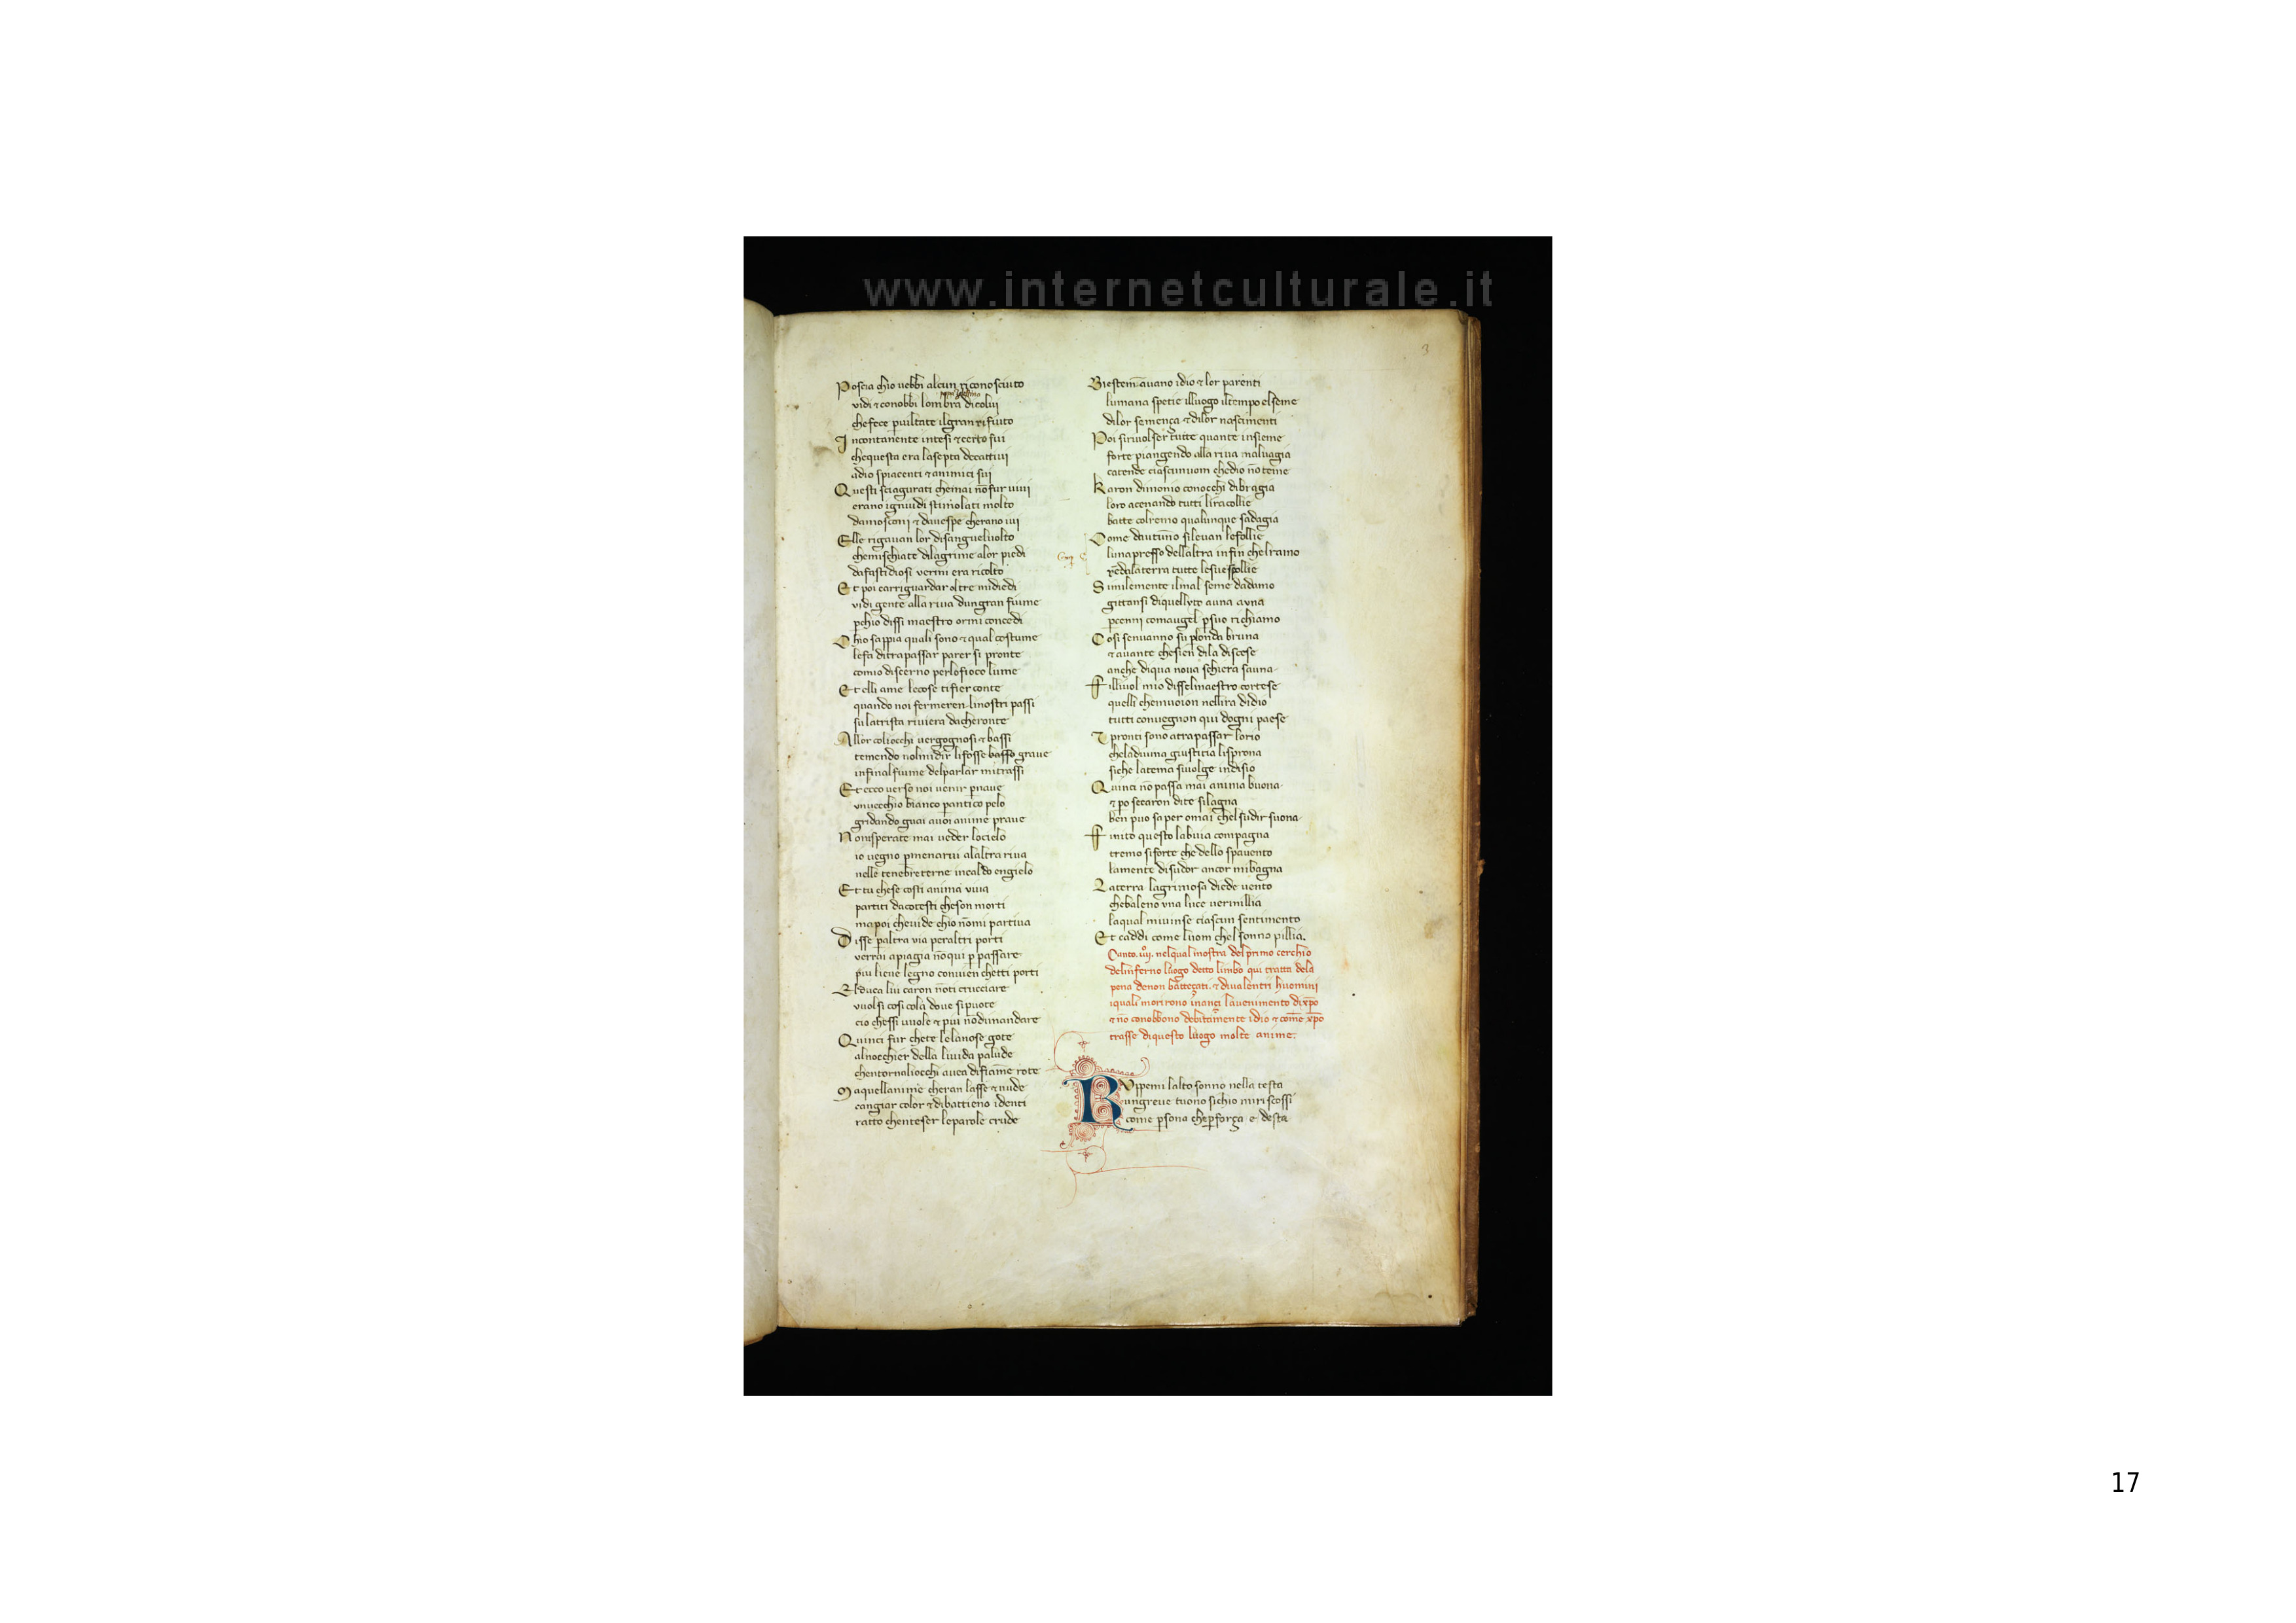 www.internetculturale.it
3
Poscia chio uebbi alcun riconosciuto
vidi ⁊ conobbi lombra dicolui
chefece puiltate ilgran rifiuto
Incontanente intesi ⁊ certo fui
chequesta era lasepta decattiui
adio spiacenti ⁊ animici sui
Questi sciagurati chemai nõ fur uiui
erano ignudi stimolati molto
damosconi ⁊ dauespe cherano iui
Elle rigauan lor disangueluolto
chemischiate dilagrime alor piedi
dafastidiosi vermi era ricolto
Et poi carriguardar oltre midiedi
vidi gente alla riua dungran fiume
pchio dissi maestro ormi concedi
Chio sappia quali sono ⁊ qual costume
lefa ditrapassar parer si pronte
comio discerno perlofioco lume
Et elli ame lecose tifier conte
quando noi fermeren linostri passi
sulatrista riuiera dacheronte
Allor coliocchi uergognosi ⁊ bassi
temendo nolmidir lifosse graue
infinalfiume delparlar mitrassi
Et ecco verso noi uenir pnaue
unuecchio bianco pantico pelo
gridando guai auoi anime praue
Nonisperate mai ueder locielo
io uegno pmenarui alaltra riua
nelle tenebreterne incaldo engielo
Et tu chese costi anima uiua
partiti dacotesti cheson morti
mapoi cheuide chio nõmi partiua
Disse paltra via peraltri porti
verrai apiagia nõ qui p passare
piu lieue legno conuien chetti porti
Elduca lui caron nõti crucciare
vuolsi cosi cola doue sipuote
cio chessi uuole ⁊ piu nõdimandare
Quinci fur chete lelanose gote
alnocchier della liuida palude
chentornaliocchi auea difiãme rote
Maquellanime cheran lasse ⁊ nude
cangiar color ⁊ dibattieno identi
ratto chenteser leparole crude
Biestemauano idio ⁊ lor parenti
lumana spetie illuogo iltempo elseme
dilor semença ⁊ dilor nascimenti
Poi siriuolser tutte quante insieme
forte piangendo alla riua maluagia
catende ciascunuom chedio nõ teme
Karon dimonio conocchi dibragia
loro acenando tutti liracollie
batte colremo qualunque sadagia
Come dautũno sileuan lefollie
luna presso dellaltra infin chelramo
rẽdalaterra tutte lesue spollie
Similemente ilmal seme dadamo
gittansi diquellito auna auna
pcenni comaugel psuo richiamo
Cosi senuanno su plonda bruna
⁊ auante chesien dila discese
anche diqua noua schiera sauna
Filliuol mio disselmaestro cortese
quelli chemuoion nellira didio
tutti conuegnon qui dogni paese
⁊ pronti sono atrapassar lorio
cheladiuina giustitia lisprona
siche latema siuolge indisio
Quinci nõ passa mai anima buona
⁊ po secaron dite silagna
ben puo saper omai chel sudir suona
Finito questo labuia compagna
tremo siforte che dello spauento
lamente disudor ancor mibagna
Laterra lagrimosa diede uento
chebaleno una luce uermillia
laqual miuinse ciascun sentimento
Et caddi come luom chel sonno pillia.
Canto .iiijº. nelqual mostra del primo cerchio
delinferno luogo detto limbo qui tratta dela
pena denon battegati. ⁊ diualentri huomini
iquali morirono inançi lauenimento di xp̃o
⁊ nõ conobbono debitamente idio ⁊ come xp̃o
trasse diquesto luogo molte anime.
RVppemi lalto sonno nella testa
ungreue tuono sichio miriscossi
come psona chepforza e desta
17